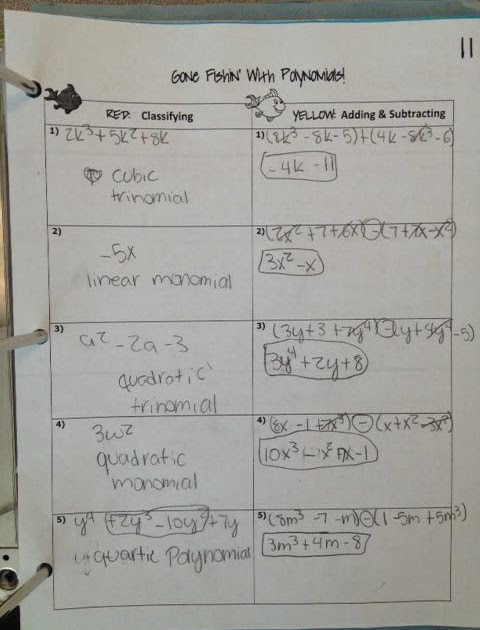 11
Gone Fishin' With Polynomials!
RED: Classifying
YELLOW: Adding & Subtracting
1) 2k³+5k²+8k
cubic
trinomial
1) (8k³-8k-5)+(4k-8k³-6)
-4k-11
2)
-5x
linear monomial
2) (2x²+7+6x)-(7+7x-x²)
3x²-x
3)
a²-2a-3
quadratic
trinomial
3) (3y+3+7y⁴)-(y+4y⁴-5)
3y⁴+2y+8
4)
3w²
quadratic
monomial
4) (8x-1+7x³)-(x+x²-3x³)
10x³-x²+7x-1
5) y⁴+2y³-10y²+7y
quartic Polynomial
5) (8m³-7-m)-(1-5m+5m³)
3m³+4m-8